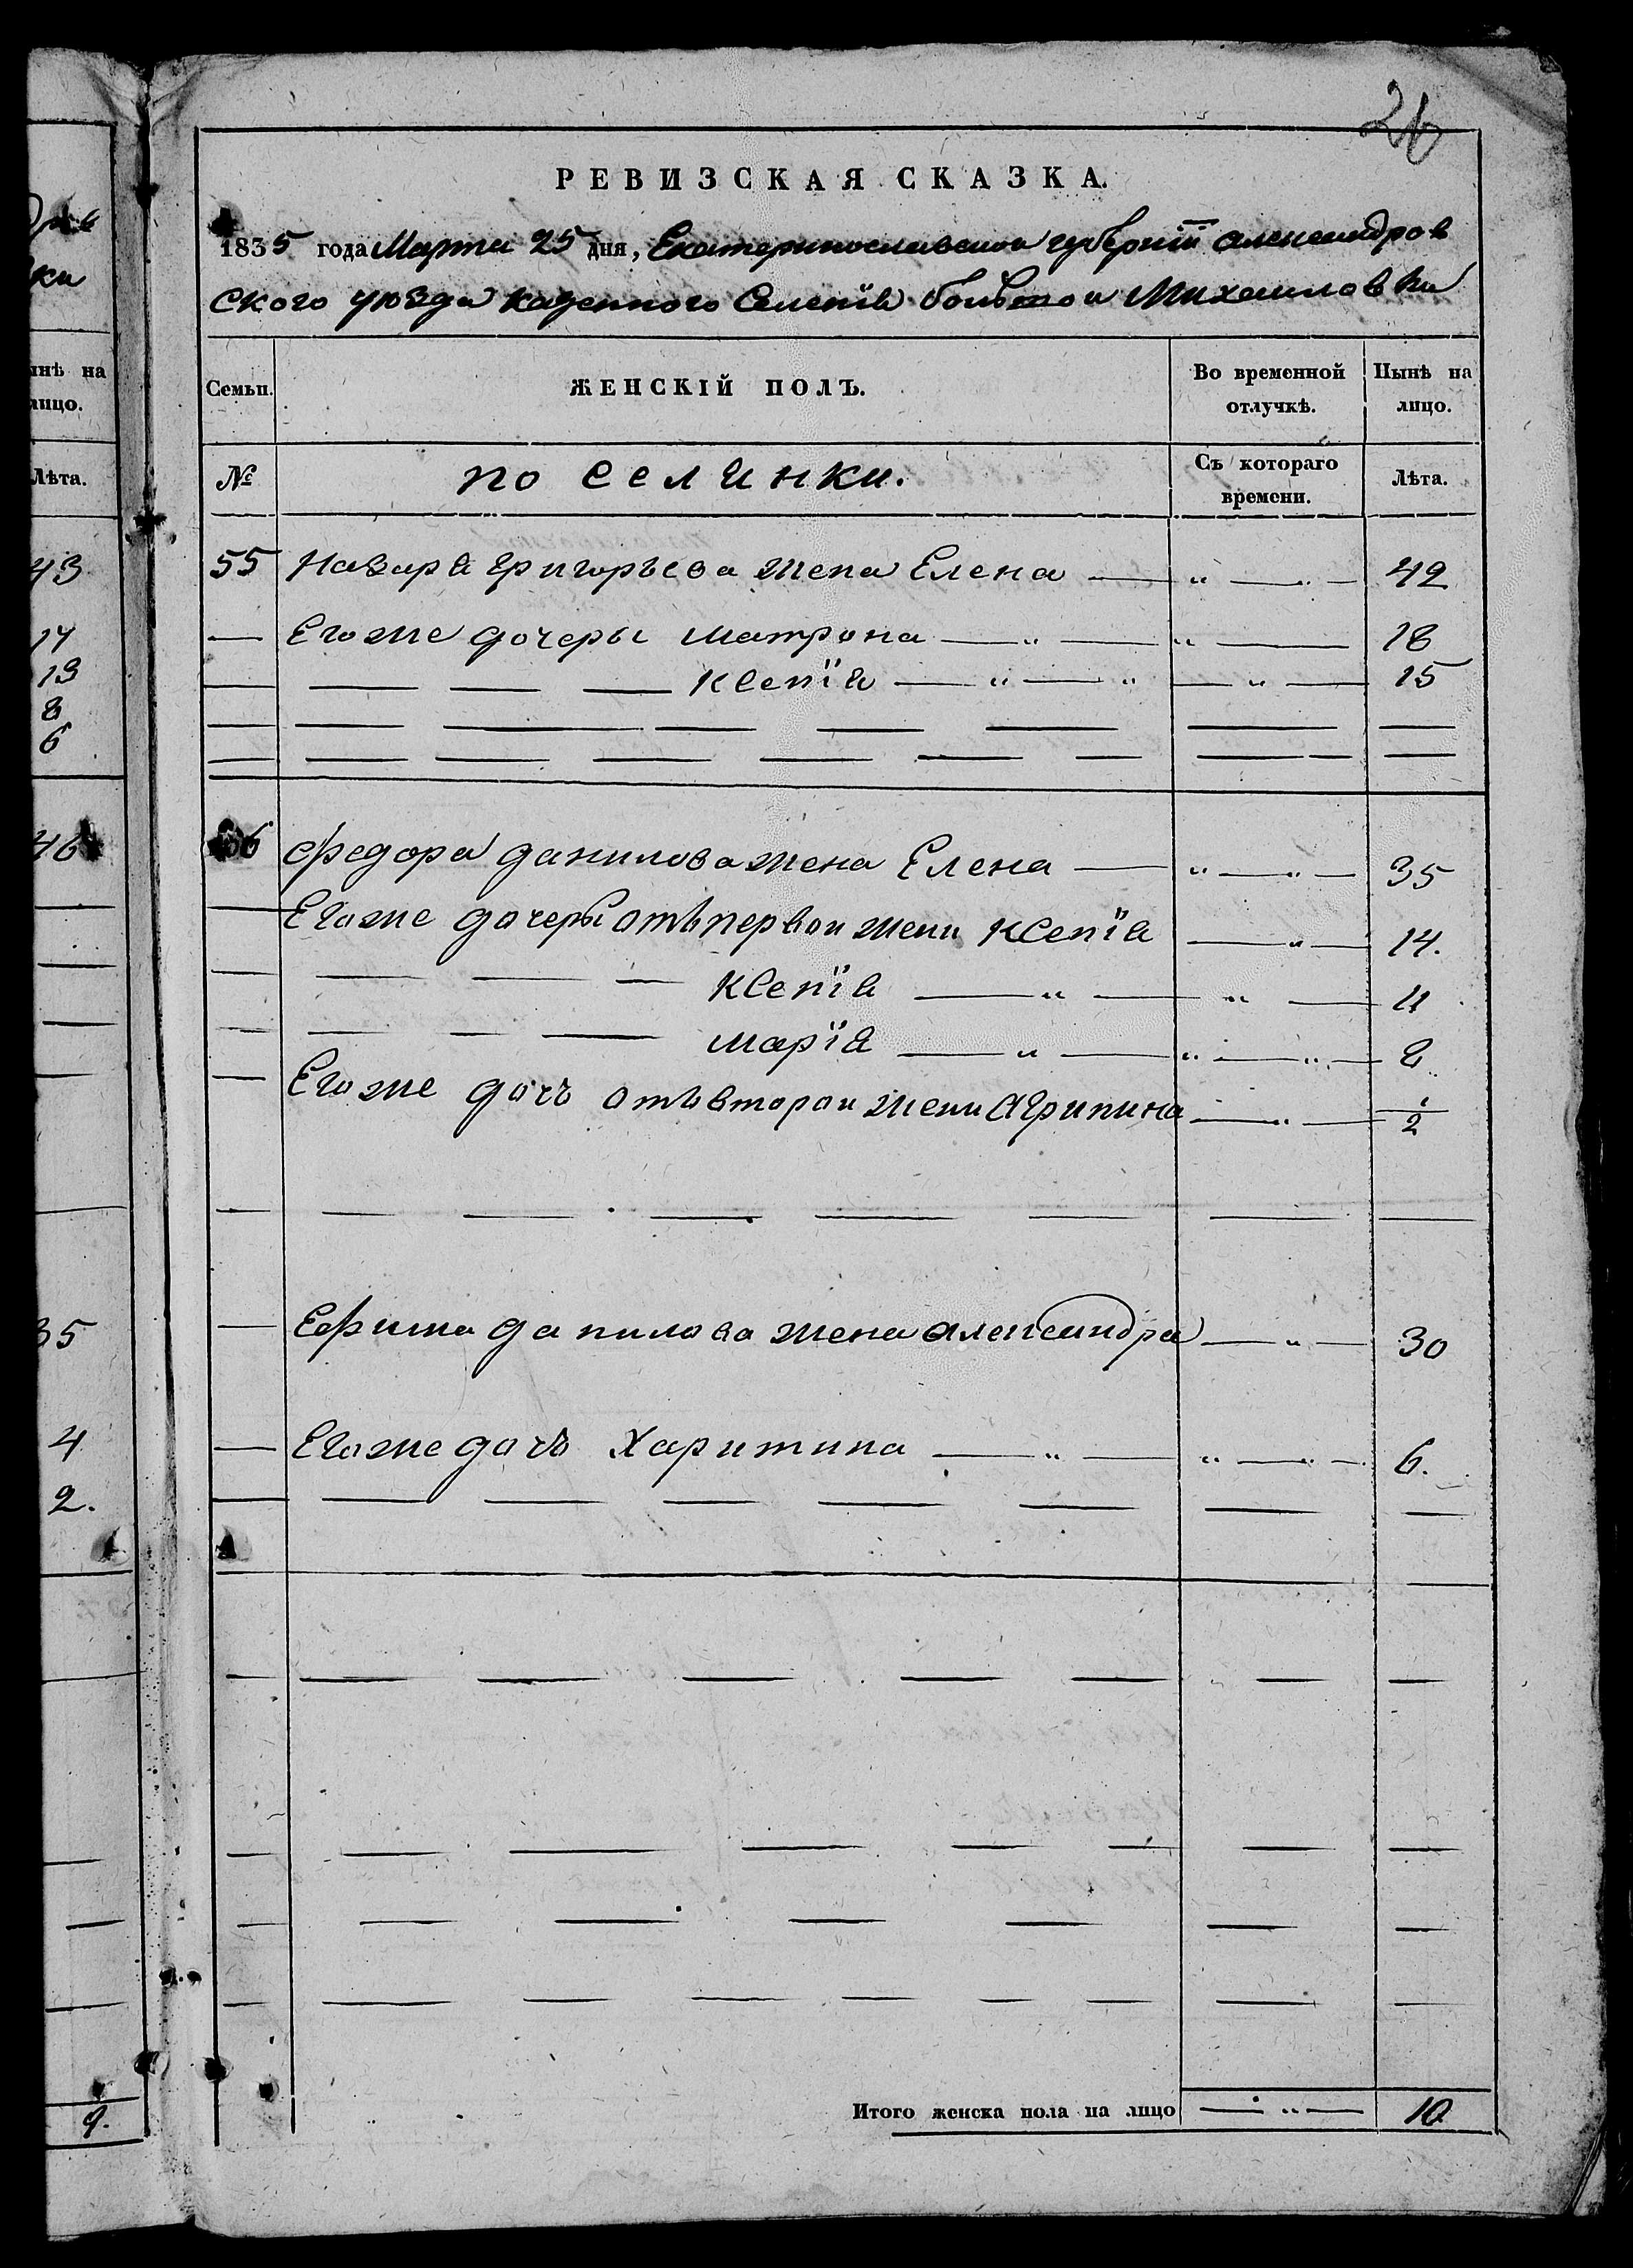 26
РЕВИЗСКАЯ СКАЗКА.
1835 года Марта 25 дня, Екатеринославской губерніи александров
ского уюзда казенного Селенія большой Михаиловки
Семьи. ЖЕНСКІЙ ПОЛЪ. Во временной отлучкѣ. Нынѣ на лицо.
№ поселянки. Съ котораго времени. Лѣта.
55 Назара григорьева жена Елена — „ — „ — 42
— Егоже дочеры матрона — „ — „ — 18
— — — — Ксенія — „ — „ — „ — 15
56 Федора данилова жена Елена — „ — „ — 35
— Егоже дочеры отъ первои жени Ксенія — „ — 14.
— — — — Ксенія — „ — „ — 11
— — — — марія — „ — „ — „ — 8
— Егоже дочъ отъ второи жени Агрипина — „ — 1/2
— Ефима данилова жена александра — „ — 30
— Егоже дочъ Харитина — „ — „ — „ — 6.
Итого женска пола на лицо — „ — 10
нынѣ на
лицо.
Лѣта.
43
14
13
8
6
46
35
4
2.
9.